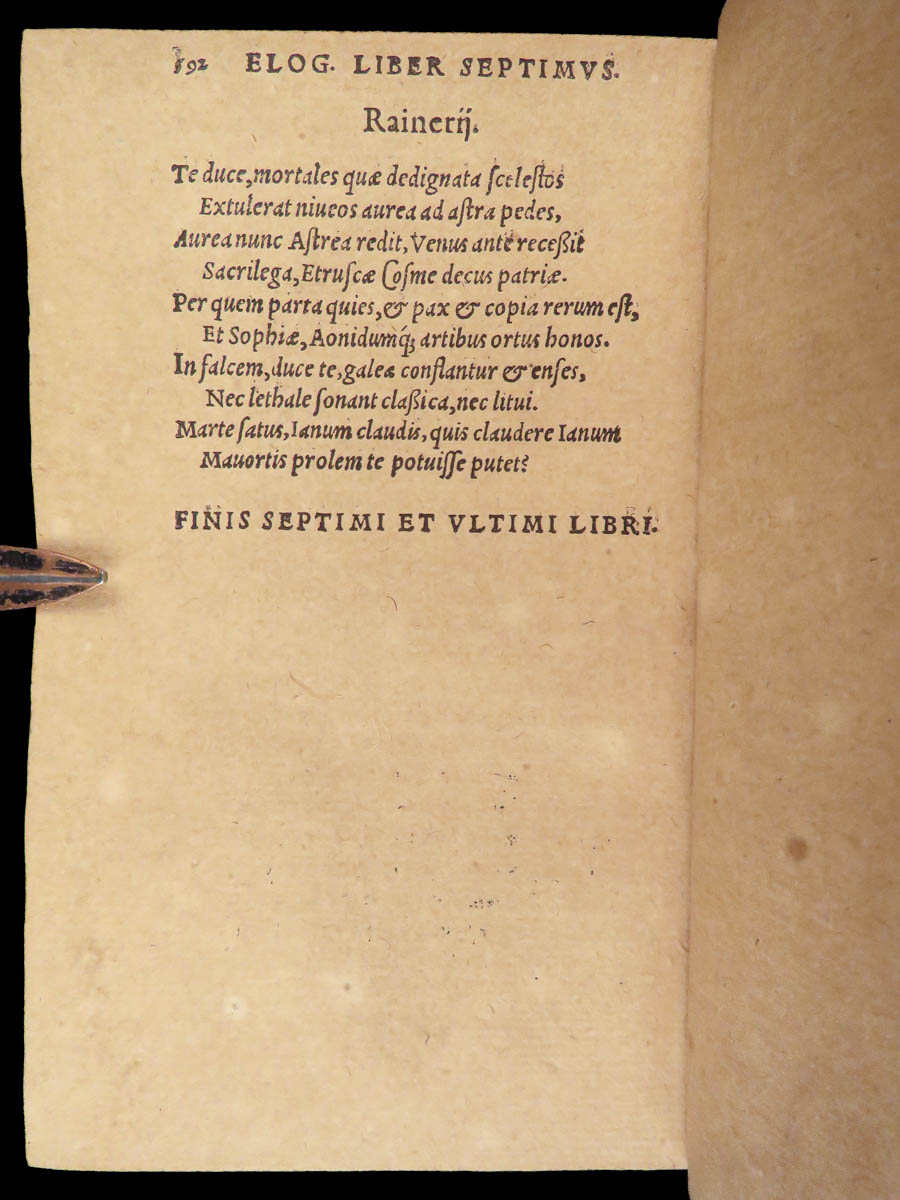 592 ELOG. LIBER SEPTIMVS.
Rainerij.
Te duce, mortales quæ dedignata ſceleſtos
Extulerat niueos aurea ad aſtra pedes,
Aurea nunc Aſtrea redit, Venus ante receßit
Sacrilega, Etruſcæ Coſme decus patriæ.
Per quem parta quies, & pax & copia rerum eſt,
Et Sophiæ, Aonidumq́; artibus ortus honos.
In falcem, duce te, galeæ conflantur & enſes,
Nec lethale ſonant claßica, nec litui.
Marte ſatus, Ianum claudis, quis claudere Ianum
Mauortis prolem te potuiſſe putet?
FINIS SEPTIMI ET VLTIMI LIBRI.